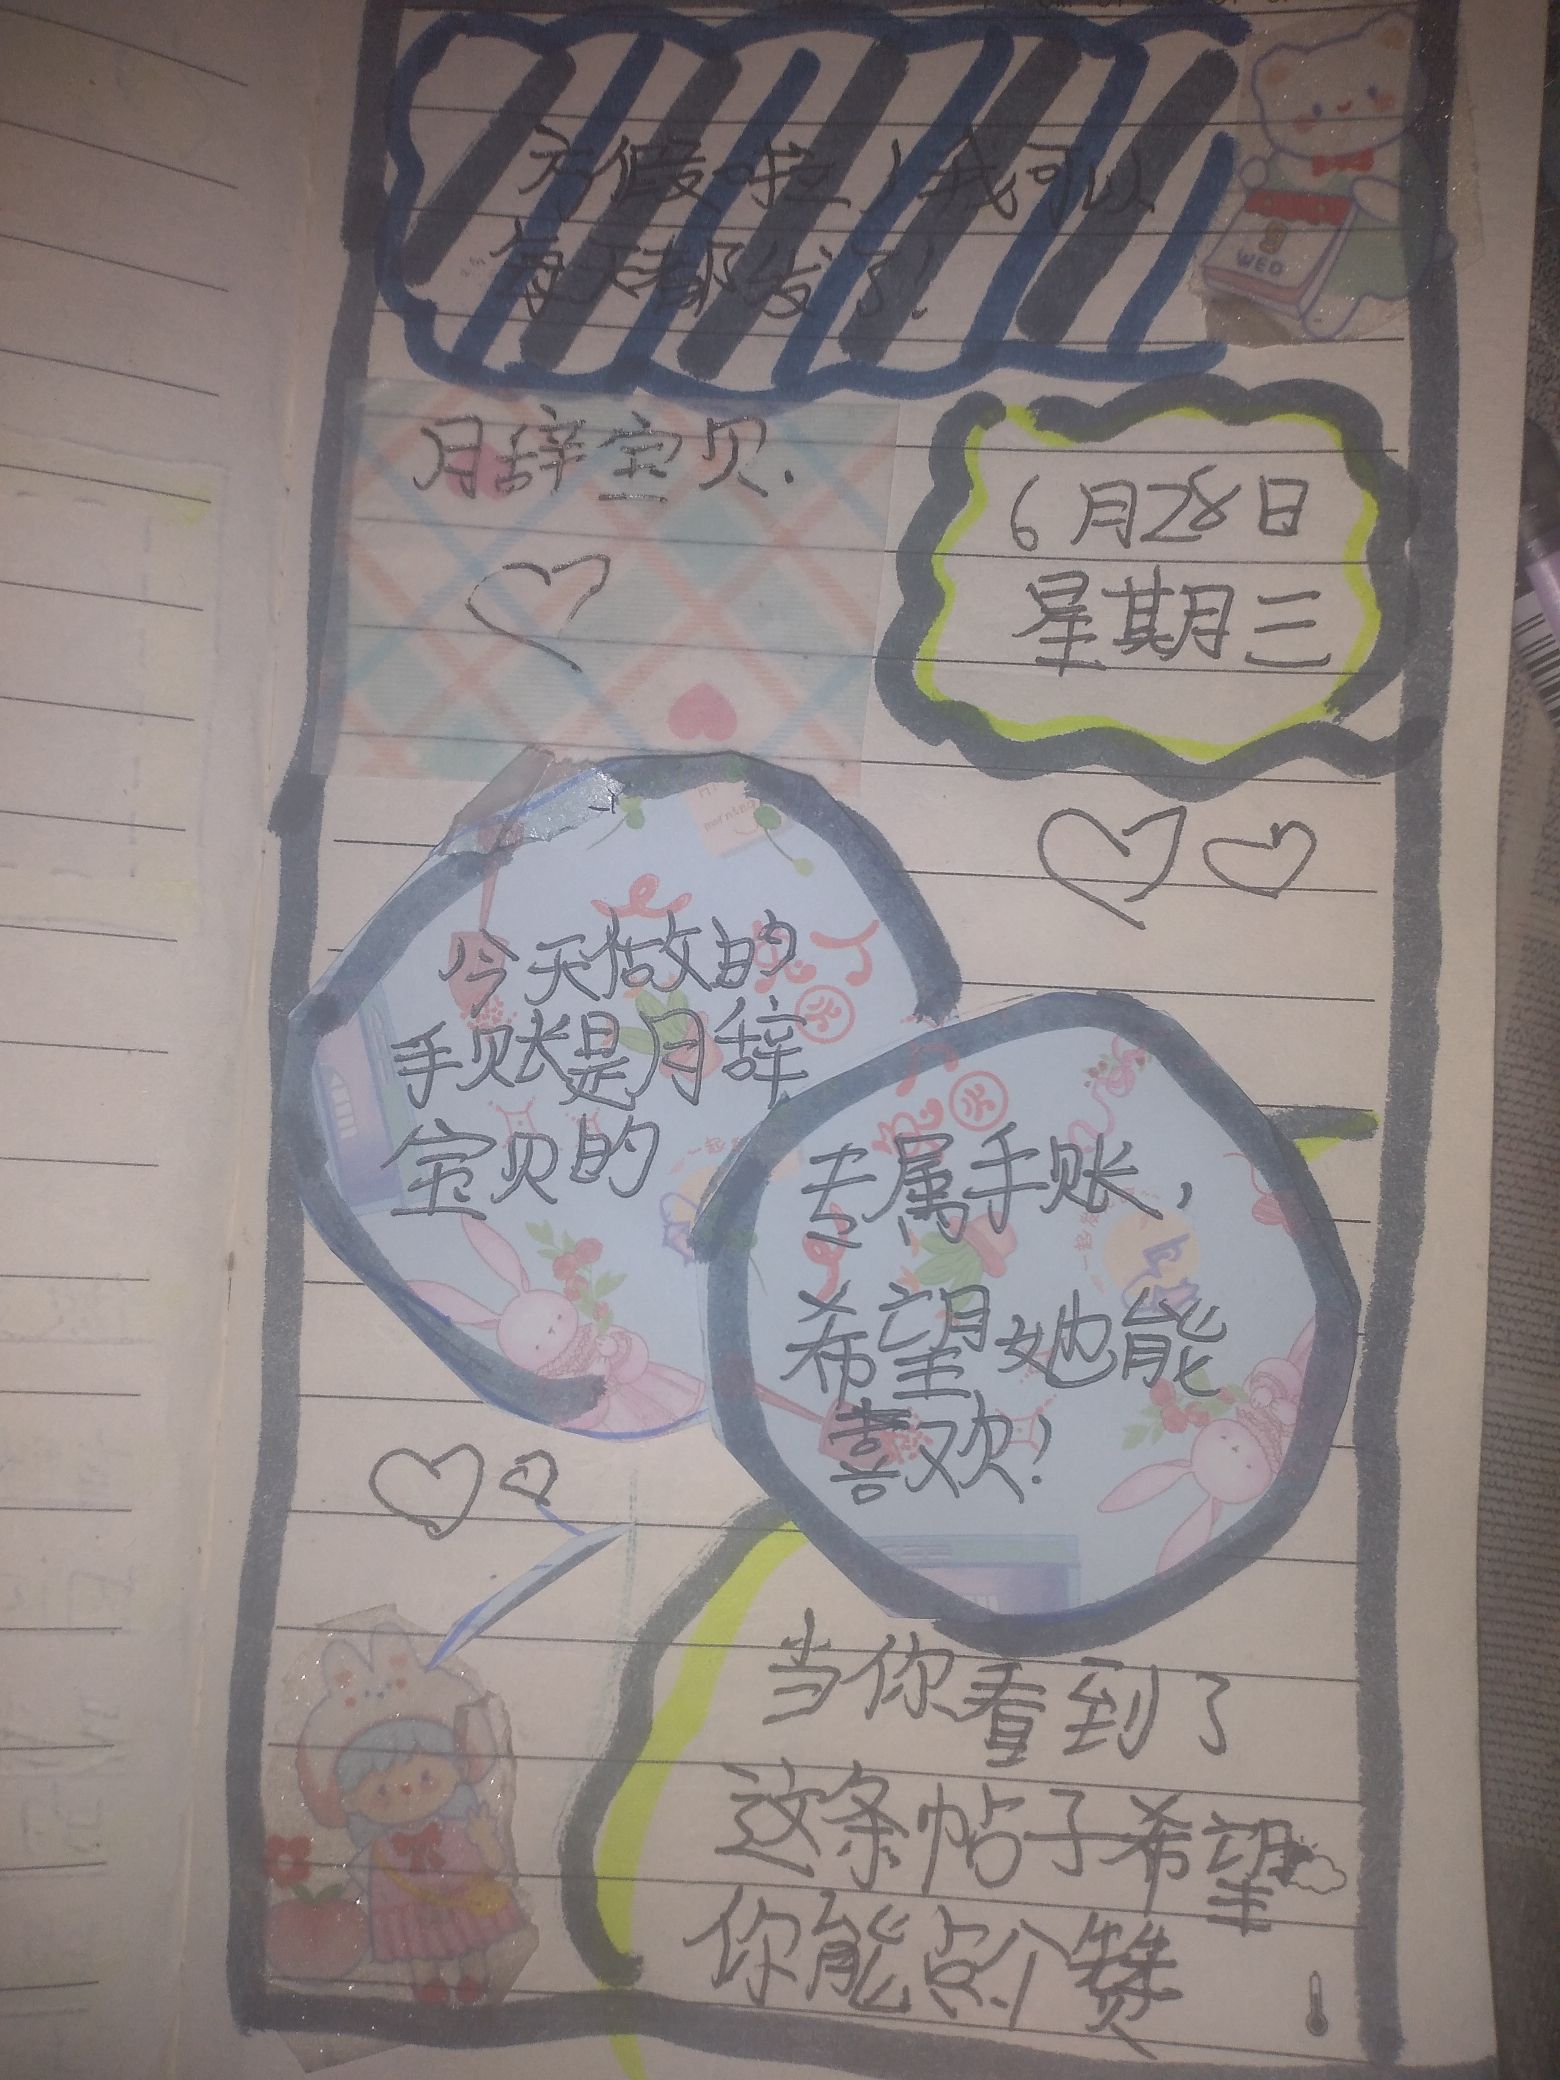 方假啦，我可以
每天都发了！
WED
月辞宝贝.
6月28日
星期三
今天做的
手账是月辞
宝贝的
专属手账，
希望她能
喜欢！
当你看到了
这条帖子希望
你能点个赞